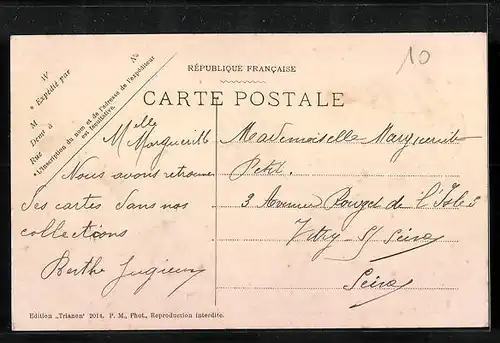 10
RÉPUBLIQUE FRANÇAISE
CARTE POSTALE
M W No
* Expédié par
M
Demt à
Rue
*L'inscription du nom et de l'adresse de l'expéditeur
est facultative.
Melle
Marguerite
Nous avons retrouvé
Ses cartes dans nos
collections
Berthe
Mademoiselle Marguerite
Petit.
3 Avenue de l'Isle
Vitry S/ Seine
Seine
Edition „Trianon" 2014. P. M., Phot., Reproduction interdite.